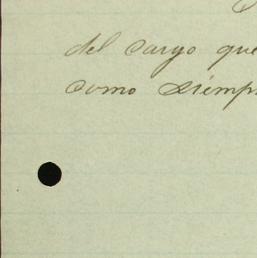 del cargo que
como siemp